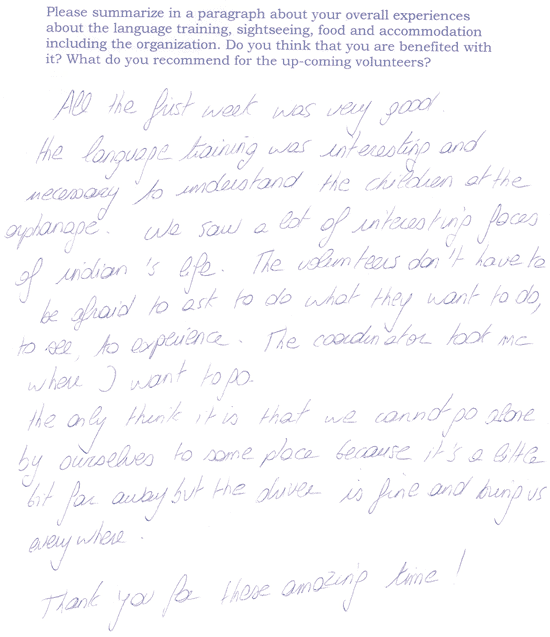 Please summarize in a paragraph about your overall experiences
about the language training, sightseeing, food and accommodation
including the organization. Do you think that you are benefited with
it? What do you recommend for the up-coming volunteers?
All the first week was very good.
the language training was interesting and
necessary to understand the children at the
orphanage. We saw a lot of interesting places
of indian's life. The volunteers don't have to
be afraid to ask to do what they want to do,
to see, to experience. The coordinator took me
where I want to go.
the only think it is that we cannot go alone
by ourselves to some place because it's a little
bit far away but the driver is fine and bring us
everywhere.
Thank you for these amazing time!